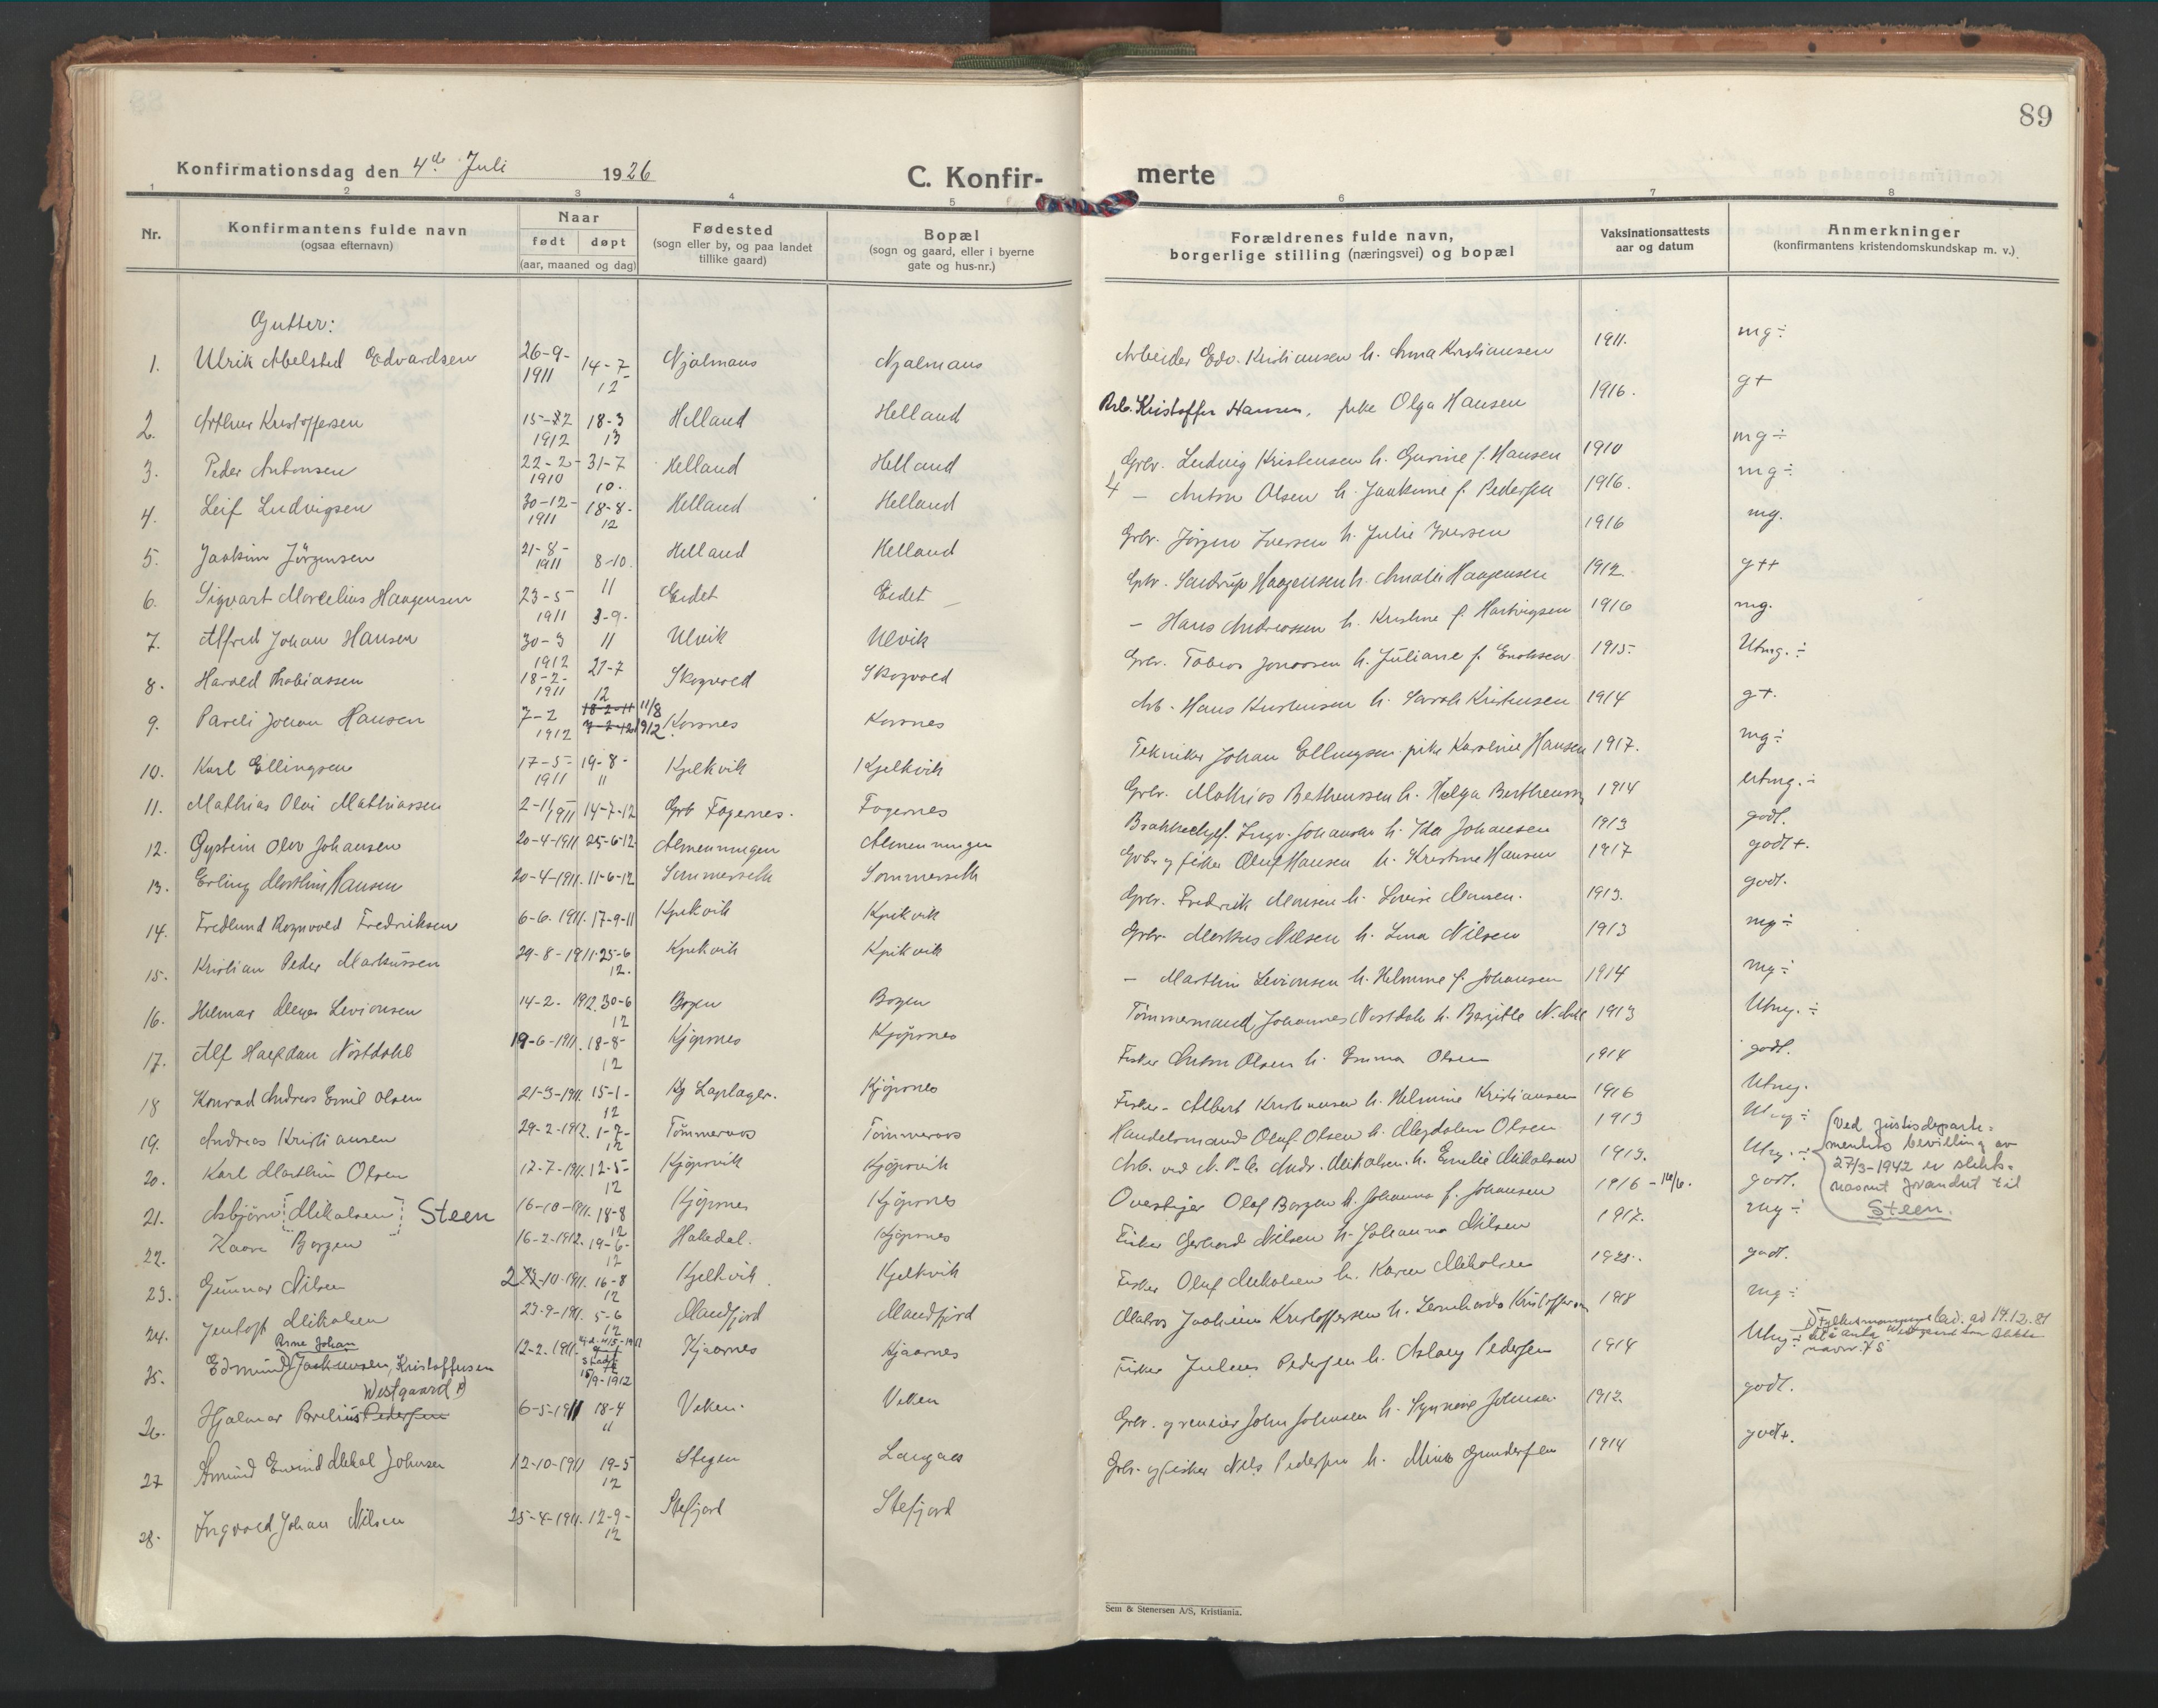 89
Konfirmationsdag den 4de Juli 1926
C. Konfir-
merte
1 2 3 4 5 6 7 8
Nr.
Konfirmantens fulde navn
(ogsaa efternavn)
Naar
født døpt
(aar, maaned og dag)
Fødested
(sogn eller by, og paa landet
tillike gaard)
Bopæl
(sogn og gaard, eller i byerne
gate og hus-nr.)
Forældrenes fulde navn,
borgerlige stilling (næringsvei) og bopæl
Vaksinationsattests
aar og datum
Anmerkninger
(konfirmantens kristendomskundskap m. v.)
Gutter:
1. Ulrik Abelsted Edvardsen 26-9-1911 14-7-12 Njalmaus Njalmaus
2. Arthur Kristoffersen 15-12 1912 18-3 13 Helland Helland
3. Peder Antonsen 22-2-1910 31-7 10. Helland Helland
4. Leif Ludvigsen 30-12-1911 18-8-12 Helland Helland
5. Joakim Jörgensen 21-8-1911 8-10. 11 Helland Helland
6. Sigvart Marcelius Haagensen 23-5 1911 3-9- 11 Eidet Eidet
7. Alfred Johan Hansen 30-3 1912 21-7 12 Ulvik Ulvik
8. Harald Thobiassen 18-2-1911 Skogvold Skogvold
9. Pareli Johan Hansen 7-2 1912 11/8 1912 Korsnes Korsnes
10. Karl Ellingsen 17-5-1911 19-8-11 Kjelkvik Kjelkvik
11. Mathias Olai Mathiassen 2-11-1911 14-7-12 Grb Fagernes. Fagernes
12. Øystein Olav Johansen 20-4-1911 25-6-12 Almenningen Almenningen
13. Erling Marthin Hansen 20-4-1911. 11-6-12 Sommerseth Sommerseth
14. Fredlund Rognvold Fredriksen 6-6-1911. 17-9-11 Kjelkvik Kjelkvik
15. Kristian Peder Markussen 29-8-1911. 25-6 12. Kjelkvik Kjelkvik
16. Helmar Meyer Levionsen 14-2-1912. 30-6 12 Bogen Bogen
17. Alf Halfdan Nöstdahl 19-6-1911. 18-8-12 Kjöpsnes Kjöpsnes
18 Konrad Andreas Emil Olsen 21-3-1911. 15-1-12 Kj Laplager. Kjöpsnes
19. Andreas Kristiansen 29-2-1912. 1-7-12 Tömmeraas Tömmeraas
20. Karl Marthin Olsen 17-7-1911. 12-5-12 Kjöpsvik Kjöpsvik
21. Asbjörn Mikalsen Steen 16-10-1911. 18-8 12 Kjöpsnes Kjöpsnes
22. Kaare Borgen 16-2-1912. 19-6-12 Hakedal. Kjöpsnes
23. Gunnar Nilsen 10-1911. 16-8 12 Kjelkvik Kjelkvik
24. Jentoft Mikalsen 23-9-1911. 5-6 12 Mandfjord Mandfjord
25. Edmund Arne Johan Joakimsen, Kristoffersen 12-2-1911. 15/9-1912 Kjaarnes Kjaarnes
26. Hjalmar Parelius Pedersen Westgaard 1) 6-5-1911 18-4 11 Veken. Veken
27 Amund Eivind Mikal Johnsen 12-10-1911 19-5 12 Stegen Langaas
28. Ingvald Johan Nilsen 25-4-1911. 12-9-12 Stefjord Stefjord
Arbeider Edv. Kristiansen h. Anna Kristiansen 1911. mg÷
Arb. Kristoffer Hansen, pike Olga Hansen 1916. g+
Grbr. Ludvig Kristensen h. Gurine f. Hansen 1910 mg÷
4 — Anton Olsen h. Joakime f. Pedersen 1916. mg÷
Grbr. Jörgen Iversen h. Julie Iversen 1916 mg.
Gbr. Sentrup Haagensen h. Amalie Haagensen 1912. g++
— Hans Andreassen h. Kristine f. Hartvigsen 1916 mg.
Grbr. Tobias Jonassen h. Juliane f. Enoksen 1915. Utmg.÷
Arb. Hans Kristensen h. Sarah Kristensen 1914 g+.
Tekniker Johan Ellingsen pike Karoline Hansen 1917. mg÷
Grbr. Mathias Bertheussen h. Helga Bertheussen 1914 utmg.÷
Johansen h. Ida Johansen 1913 godt.
Grbr. og fisker Oluf Hansen h. Kristine Hansen 1917 godt+.
Grbr. Fredrik Monsen h. Lovise Monsen. 1913. godt.
Grbr. Markus Nilsen h. Lina Nilsen 1913 mg÷
— Marthin Levionsen h. Helmine f. Johansen 1914 mg÷
Tömmermand Johannes Nöstdahl h. Bergitte N.dahl 1913 Utmg.÷
Fisker Anton Olsen h. Emma Olsen 1914 godt.
Fisker - Albert Kristiansen h. Helmine Kristiansen 1916 Utmg.
Handelsmand Oluf Olsen h. Magdalene Olsen 1913 Utmg÷
Arb. ved N.P.C. Andr. Mikalsen h. Emelie Mikalsen 1913. Utmg.÷
Overstiger Olaf Borgen h. Johanna f. Johansen 1916 - 16/6. godt.
Fisker Gerhard Nilsen h. Johanna Nilsen 1917. mg÷
Fisker Oluf Mikalsen h. Karen Mikalsen 1925. godt.
Matros Joakim Kristoffersen h. Leonharda Kristoffersen 1918 mg÷
Fisker Julius Pedersen h. Aslaug Pedersen 1914 Utmg÷
Grbr. og rensier John Johnsen h. Synnöve Johnsen 1912. godt.
Grbr. og fisker Nils Pedersen h. Mina Gundersen 1914 godt.
Ved justisdeparte-
mentets bevilling av
27/3-1942 er slekts-
navnet forandret til
Steen.
1) Fylkesmannen i Nordland. ad 17.12.81
Westgaard som slekts-
navn.
Sem & Stenersen A/S, Kristiania.